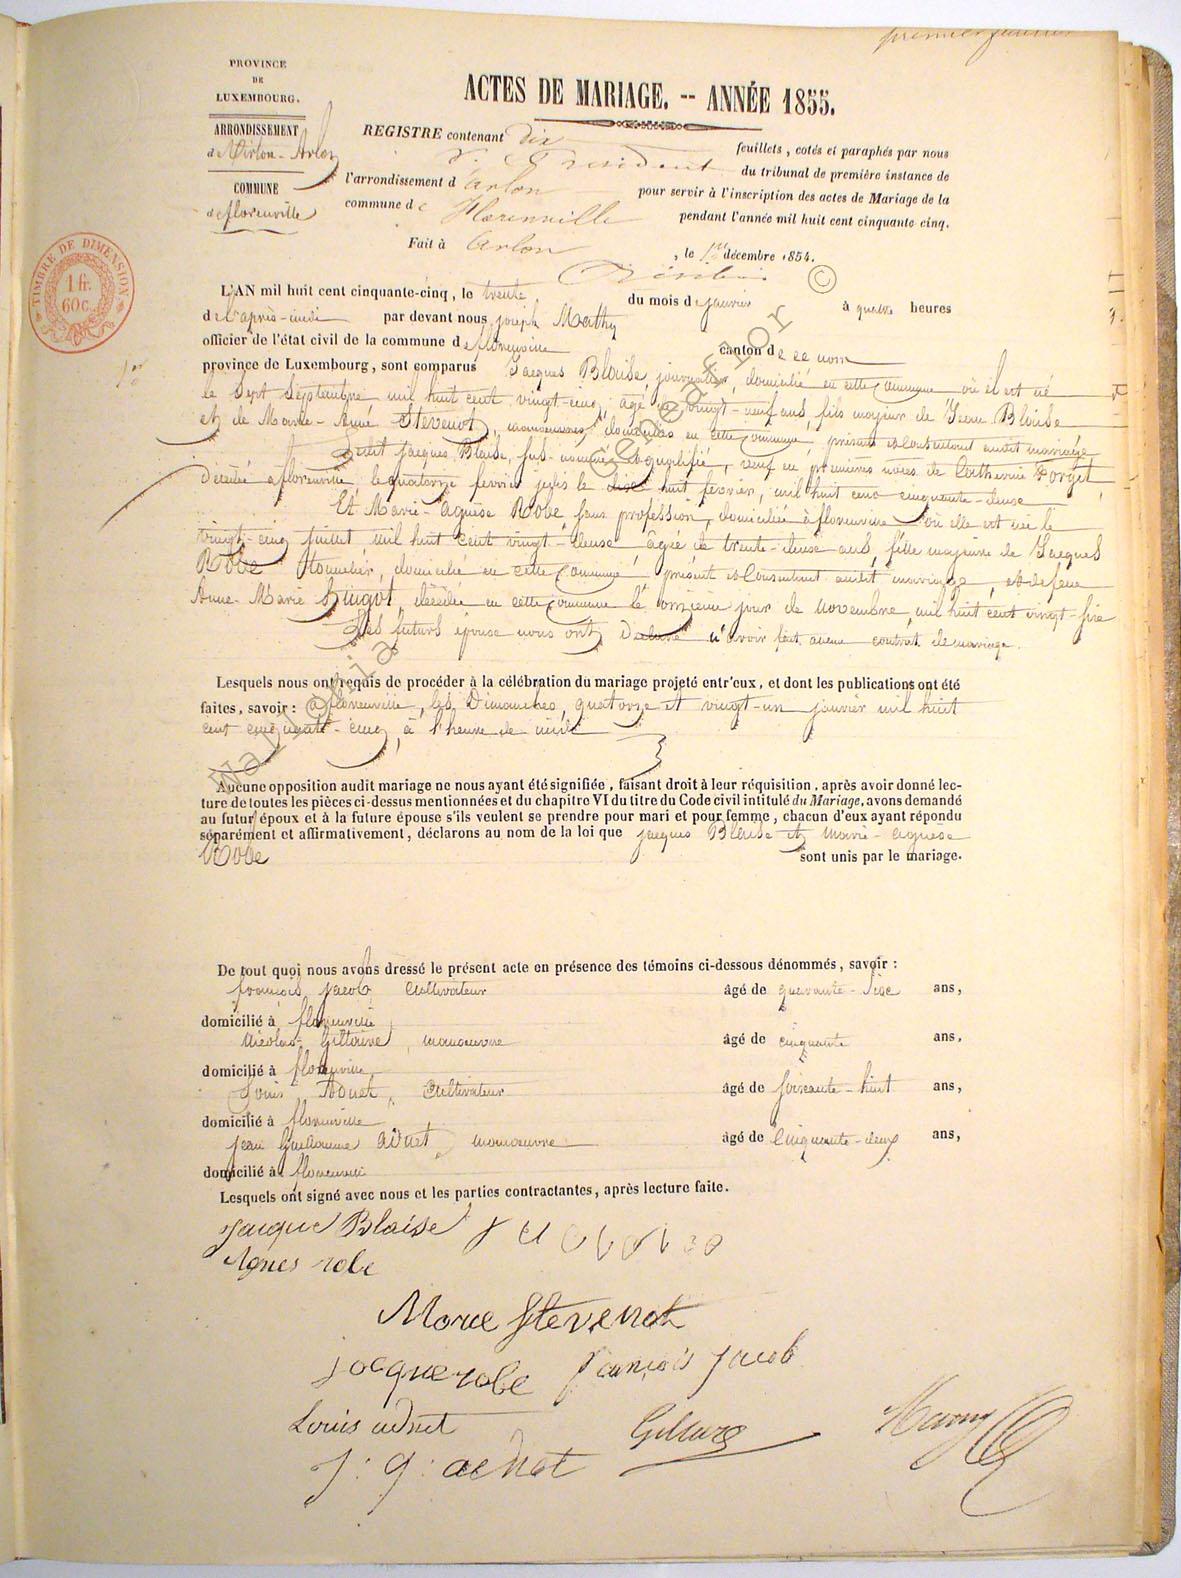 premier feuillet
PROVINCE
DE
LUXEMBOURG.
ARRONDISSEMENT
d'Virton-Arlon
COMMUNE
de florenville
TIMBRE DE DIMENSION
1 fr.
60 c.
ACTES DE MARIAGE. -- ANNÉE 1855.
REGISTRE contenant dix feuillets, cotés et paraphés par nous
Président du tribunal de première instance de
l'arrondissement d'Arlon pour servir à l'inscription des actes de Mariage de la
commune de Florenville pendant l'année mil huit cent cinquante cinq.
Fait à Arlon, le 1er décembre 1854.
L'AN mil huit cent cinquante-cinq, le trente du mois de janvier à quatre heures
de l'après-midi par devant nous joseph Mathy
officier de l'état civil de la commune de florenville canton de ce nom
province de Luxembourg, sont comparus Jacques Blaise, journalier, domicilié en cette Commune où il est né
1er
le Sept Septembre mil huit cent vingt-cinq, âgé de vingt-neuf ans, fils majeur de Jean Blaise
et de Marie-Anne Stevenot, manoeuvres, domiciliés en cette Commune, présents et Consentant audit mariage
Ledit Jacques Blaise, sus-nommé et qualifié, veuf en premières noces de Catherine Forget,
Décédée à florenville le quatorze février jusque le dix huit février, mil huit cent cinquante-deux
Et Marie-Agnèse Robe, sans profession, domiciliée à florenville où elle est née le
vingt-cinq juillet mil huit cent vingt-deux, âgée de trente-deux ans, fille majeure de Jacques
Robe, domicilié en cette Commune, présent et Consentant audit mariage, et de feue
Anne-Marie Hugot, décédée en cette Commune le onzième jour de novembre, mil huit cent vingt-six
Les futurs époux nous ont Déclaré n'avoir fait aucun contrat de mariage.
Lesquels nous ont requis de procéder à la célébration du mariage projeté entr'eux, et dont les publications ont été
faites, savoir: à florenville, les Dimanches, quatorze et vingt-un janvier mil huit
cent cinquante-cinq, à l'heure de midi
Aucune opposition audit mariage ne nous ayant été signifiée, faisant droit à leur réquisition, après avoir donné lec-
ture de toutes les pièces ci-dessus mentionnées et du chapitre VI du titre du Code civil intitulé du Mariage, avons demandé
au futur époux et à la future épouse s'ils veulent se prendre pour mari et pour femme, chacun d'eux ayant répondu
séparément et affirmativement, déclarons au nom de la loi que jacques Blaise et Marie-Agnèse
Robe sont unis par le mariage.
De tout quoi nous avons dressé le présent acte en présence des témoins ci-dessous dénommés, savoir:
françois jacob, Cultivateur âgé de quarante-six ans,
domicilié à florenville
Nicolas Giltaire, manoeuvre âgé de cinquante ans,
domicilié à florenville
Louis Adnet, Cultivateur âgé de soixante-huit ans,
domicilié à florenville
jean Guillaume adnet, manoeuvre âgé de cinquante-deux ans,
domicilié à florenville
Lesquels ont signé avec nous et les parties contractantes, après lecture faite.
jacque Blaise
Agnes robe
Marie Stevenot
jacque robe françois jacob
Louis adnet Giltaire Mathy
j: g: adnet
Wallonia Geneafior ©